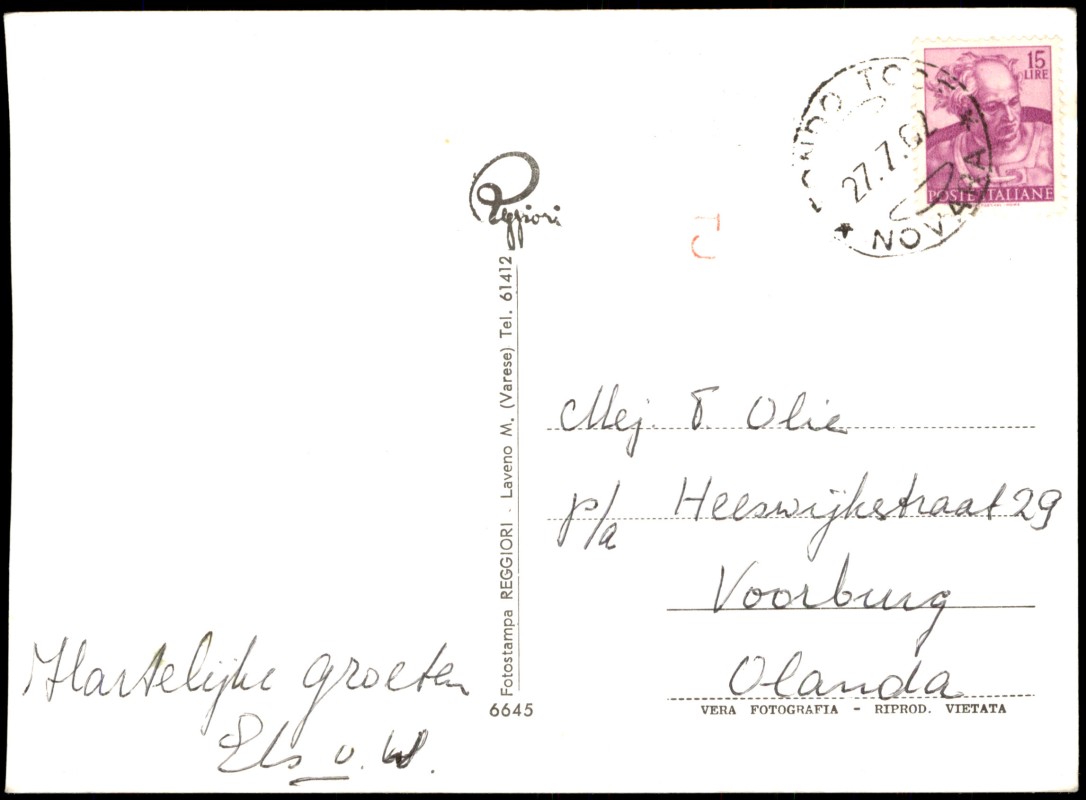 Reggiori
15
LIRE
POSTE ITALIANE
TOCE
27.7.62
NOVARA
Fotostampa REGGIORI - Laveno M. (Varese) Tel. 61412
6645
Mej. T. Olie
p/a Heeswijkstraat 29
Voorburg
Olanda
VERA FOTOGRAFIA - RIPROD. VIETATA
Hartelijke groeten
Els v. W.